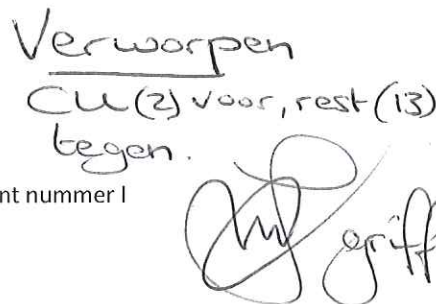 Verworpen
CU (2) voor, rest (13)
tegen.
nt nummer I
griff